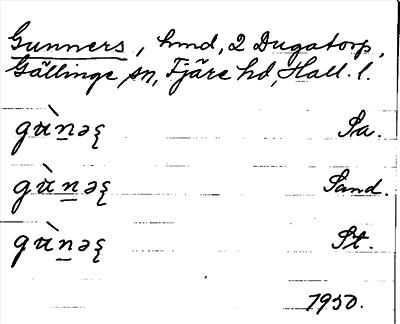 Gunners, hmd, 2 Dugatorp,
Gällinge sn, Fjäre hd, Hall. l.
gɯ̀n̲əʂ Sa.
gɯ̀n̲əʂ Sand.
gɯ̀n̲əʂ St.
1950.